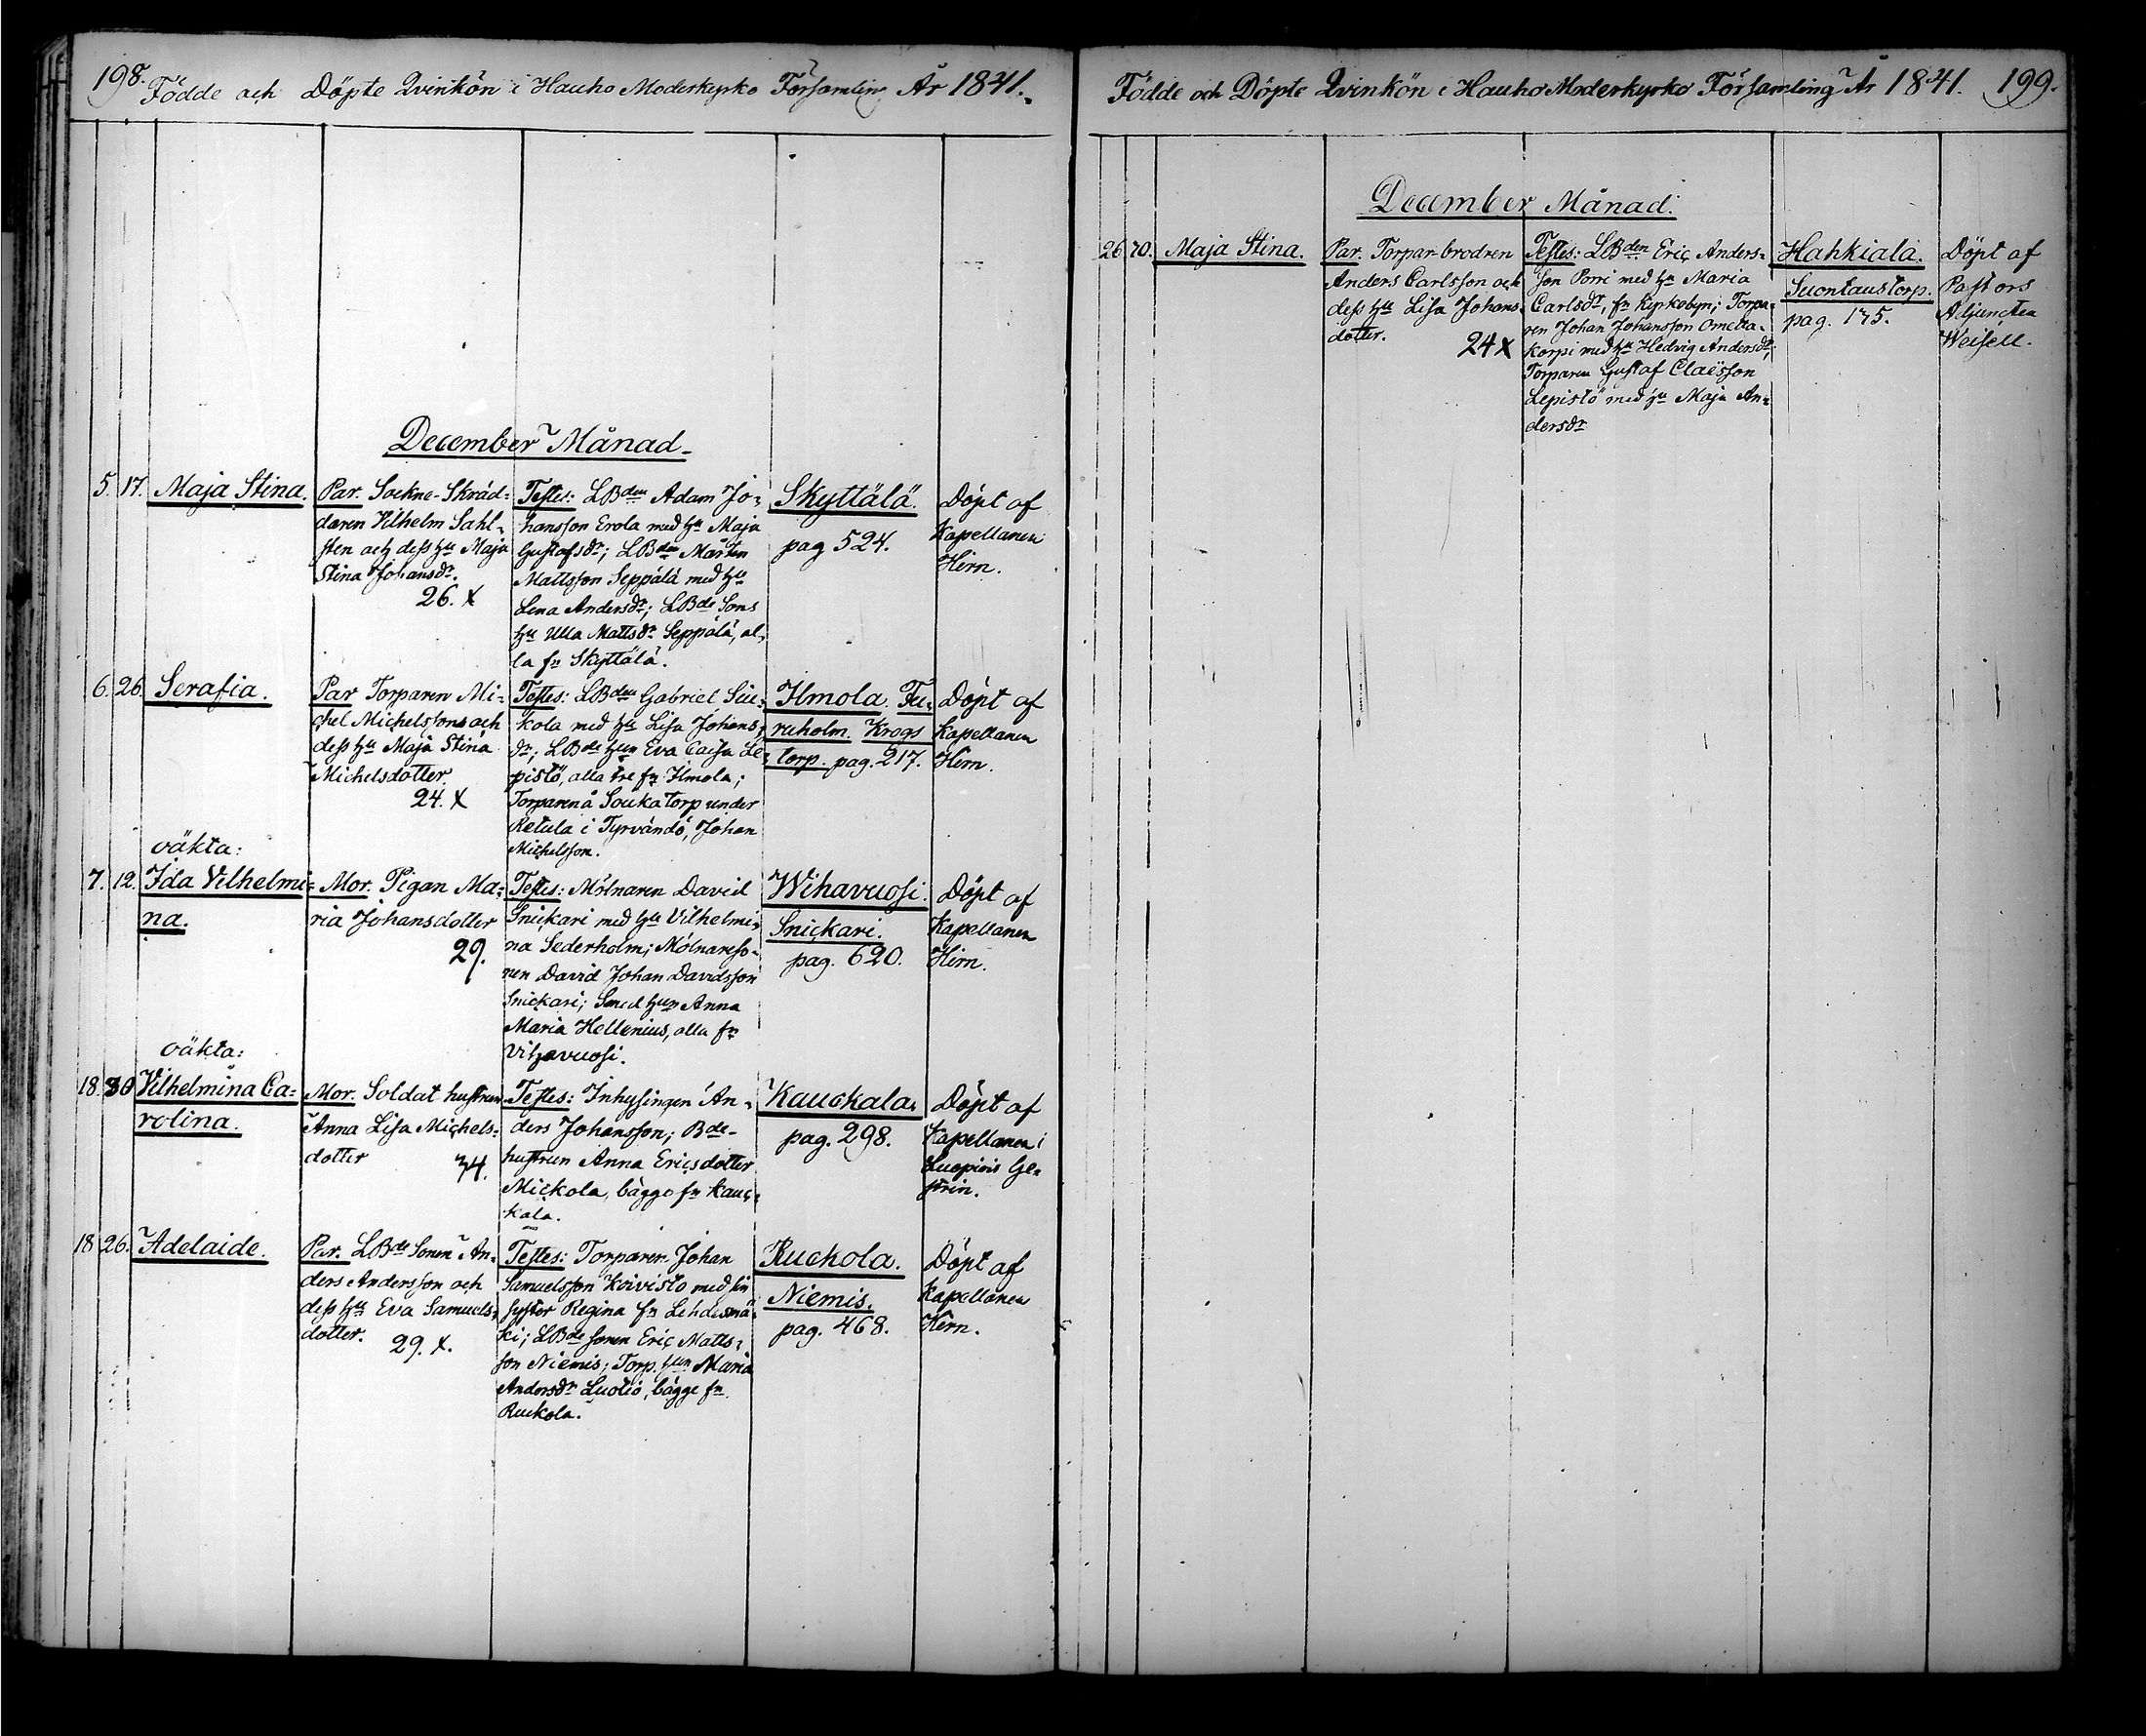 198. Födde och Döpte Qvinkön i Hauho Moderkyrko Församling År 1841.
December Månad
5. 17. Maja Stina.
Par. Sockne-Skräd=
daren Vilhelm Sahl=
sten och dess hu Maja
Stina Johansdr.
26. x
Testes: LBden Adam Jo=
hansson Erola med hu Maja
Gustafsdr; LBden Mårten
Mattsson Seppälä med hu
Lena Andersdr; LBde Sons
hu Ulla Mattsdr Seppälä, al=
la fn Skyttälä.
Skyttälä.
pag 524.
Döpt af
Kapellanen
Hirn.
6. 26. Serafia.
Par Torparen Mi=
chel Michelsson och
dess hu Maja Stina
Michelsdotter
24. x
Testes: LBden Gabriel Siu=
kola med hu Lisa Johans=
dr; LBde hun Eva Caisa Le=
pistö, alla tre fn Ilmola;
Torparen å Souka torp under
Retula i Tyrvändö, Johan
Michelsson.
Ilmola. Fu=
ruholm. Krogs
torp. pag. 217.
Döpt af
Kapellanen
Hirn.
oäkta:
7. 12. Ida Vilhelmi=
na.
Mor. Pigan Ma=
ria Johansdotter
29.
Testes: Mölnaren David
Snickari med hu Vilhelmi=
na Sederholm; Mölnareso=
nen David Johan Davidsson
Snickari; Smed hun Anna
Maria Hellenius, alla fn
Vihavuosi.
Wihavuosi.
Snickari.
pag. 620.
Döpt af
Kapellanen
Hirn.
oäkta:
18. 30 Vilhelmina Ca=
rolina.
Mor. Soldat hustrun
Anna Lisa Michels=
dotter
34.
Testes: Inhysingen An=
ders Johansson; Bde-
hustrun Anna Ericsdotter
Mickola, bägge fn Kauc=
kala.
Kauckala.
pag. 298.
Döpt af
Kapellanen i
Luopiois Ge=
strin.
18 26. Adelaide.
Par. LBde Sonen An=
ders Andersson och
dess hu Eva Samuels=
dotter.
29. x.
Testes: Torparen Johan
Samuelsson Koivisto med sin
syster Regina fn Lehdesmä=
ki; LBde sonen Eric Matts=
son Niemis; Torp. hun Maria
Andersdr Luotio, bägge fn
Ruckola.
Ruckola.
Niemis.
pag. 468.
Döpt af
Kapellanen
Hirn.
Födde och Döpte Qvinkön i Hauho Moderkyrko Församling År 1841. 199.
December Månad.
26 70. Maja Stina.
Par. Torpar-brodren
Anders Carlsson och
dess hu Lisa Johans=
dotter.
24 x
Testes: LBden Eric Anders=
son Porri med hu Maria
Carlsdr, fn Kyrkobyn; Torpa=
ren Johan Johansson Ometta=
korpi med hu Hedvig Andersdr;
Torparen Gustaf Claësson
Lepistö med hu Maja An=
dersdr
Hahkiala.
Suontaustorp.
pag. 175.
Döpt af
Pastors
Adjuncten
Weisell.